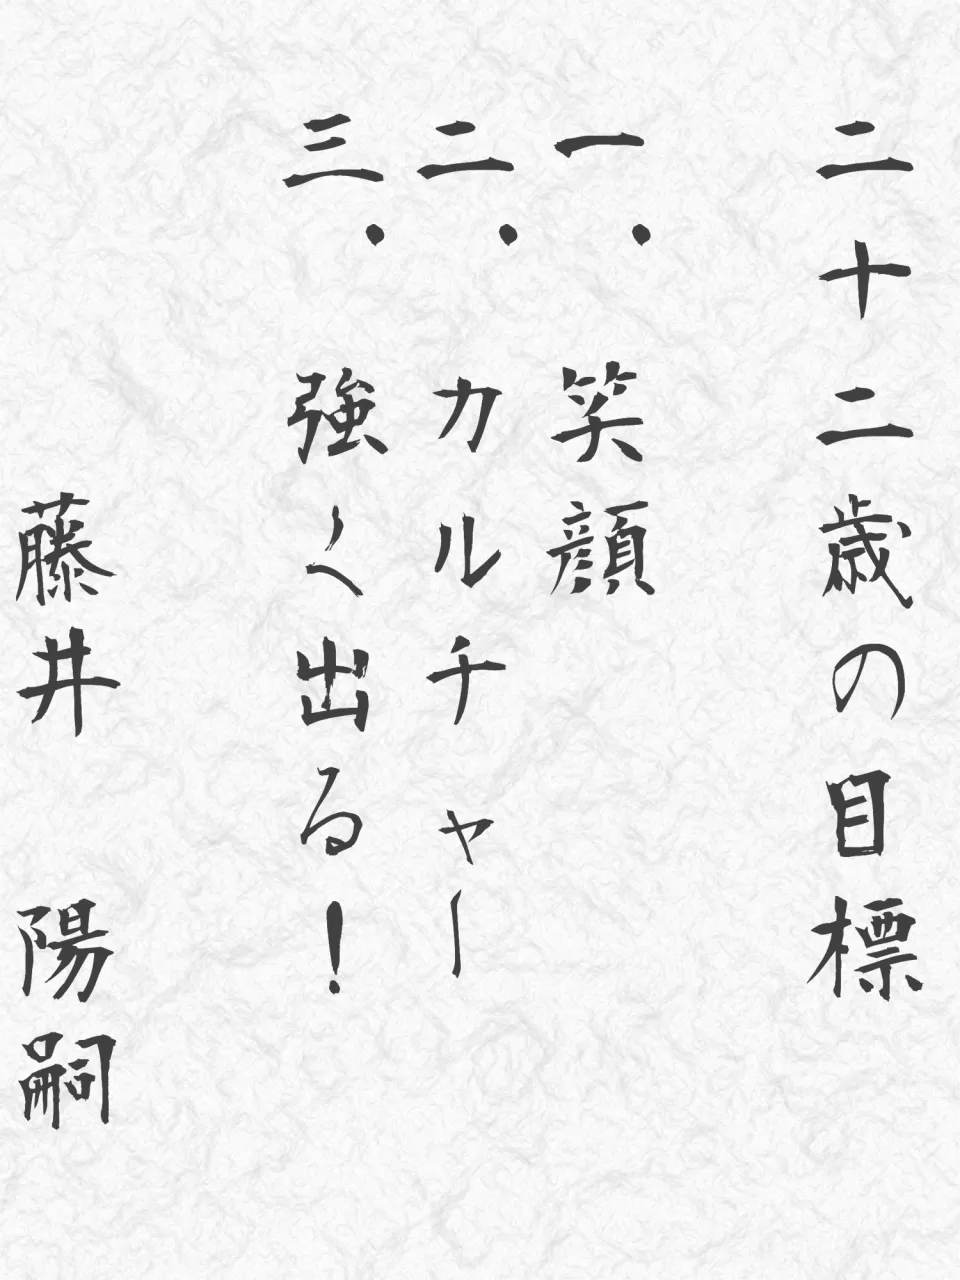 二十二歳の目標
一． 笑顔
二． カルチャー
三． 強く出る！
藤井 陽嗣